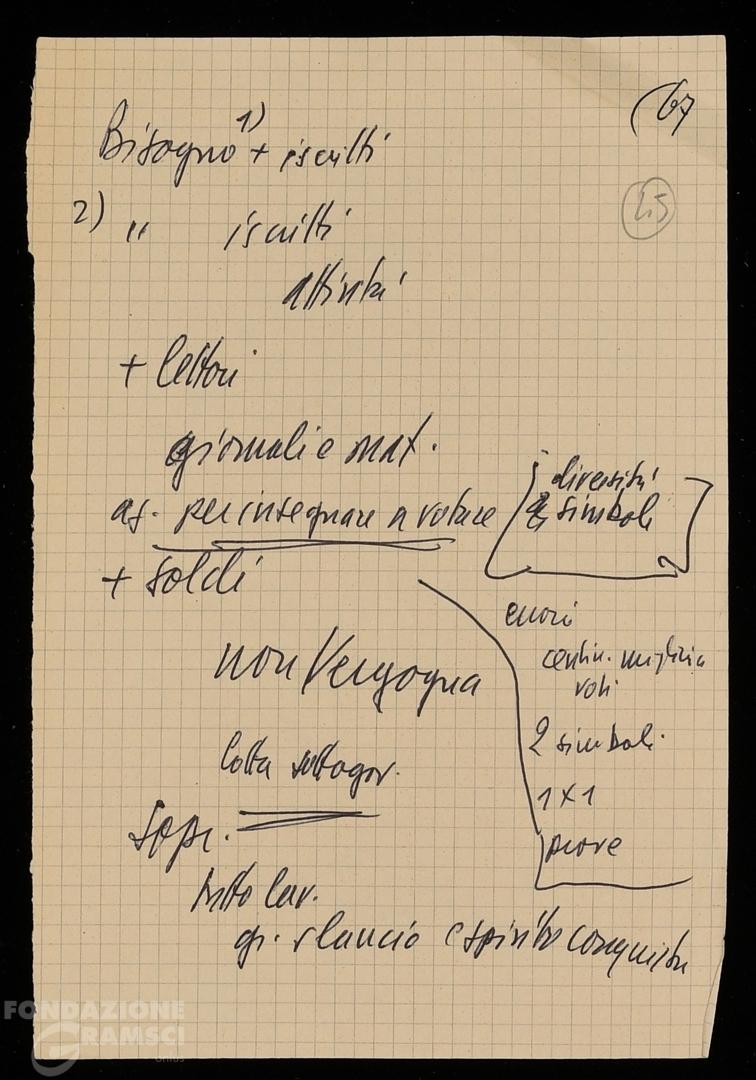 (67
25
1)
Bisogno + iscritti
2) " iscritti
attività
+ lettori
giornali e mat.
per insegnare a votare
diversità
simboli
+ soldi
errori
centin. migliaia
voti
non Vergogna
2 simboli
lotta sottogov.
1 x 1
prove
Sopr.
tutto lav.
gr. slancio e spirito conquista
FONDAZIONE
GRAMSCI
onlus